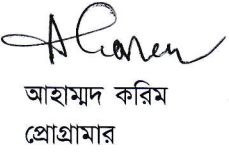 আহাম্মদ করিম
প্রোগ্রামার